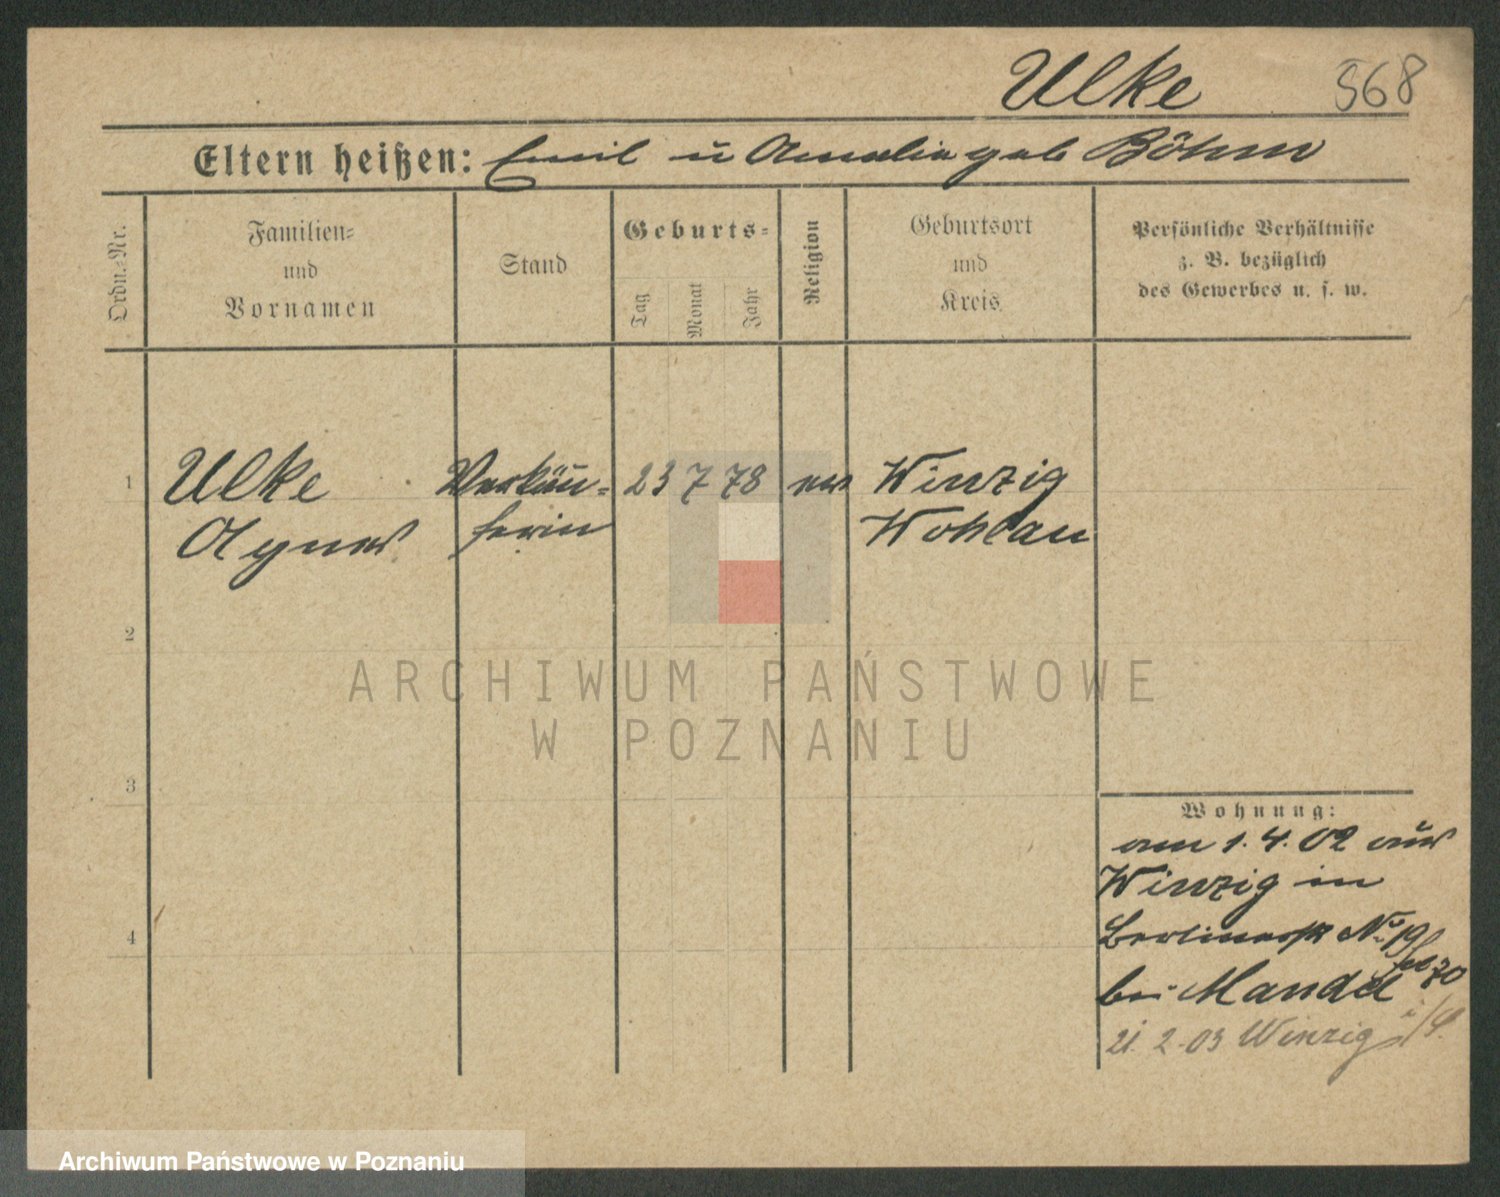 Ulke 568
Eltern heißen: Emil u Amalie geb Böhm
Ordn.-Nr.
Familien-
und
Vornamen
Stand
Geburts-
Tag
Monat
Jahr
Religion
Geburtsort
und
Kreis
Persönliche Verhältnisse
z. B. bezüglich
des Gewerbes u. s. w.
1 Ulke Verkäu- 23 7 78 ev Winzig
Agnes ferin Wohlau
2
ARCHIWUM PAŃSTWOWE
W POZNANIU
3
Wohnung:
am 1. 4. 02 aus
Winzig in
4 Berlinerstr No 19
bei Mandel
21. 2. 03 Winzig
Archiwum Państwowe w Poznaniu